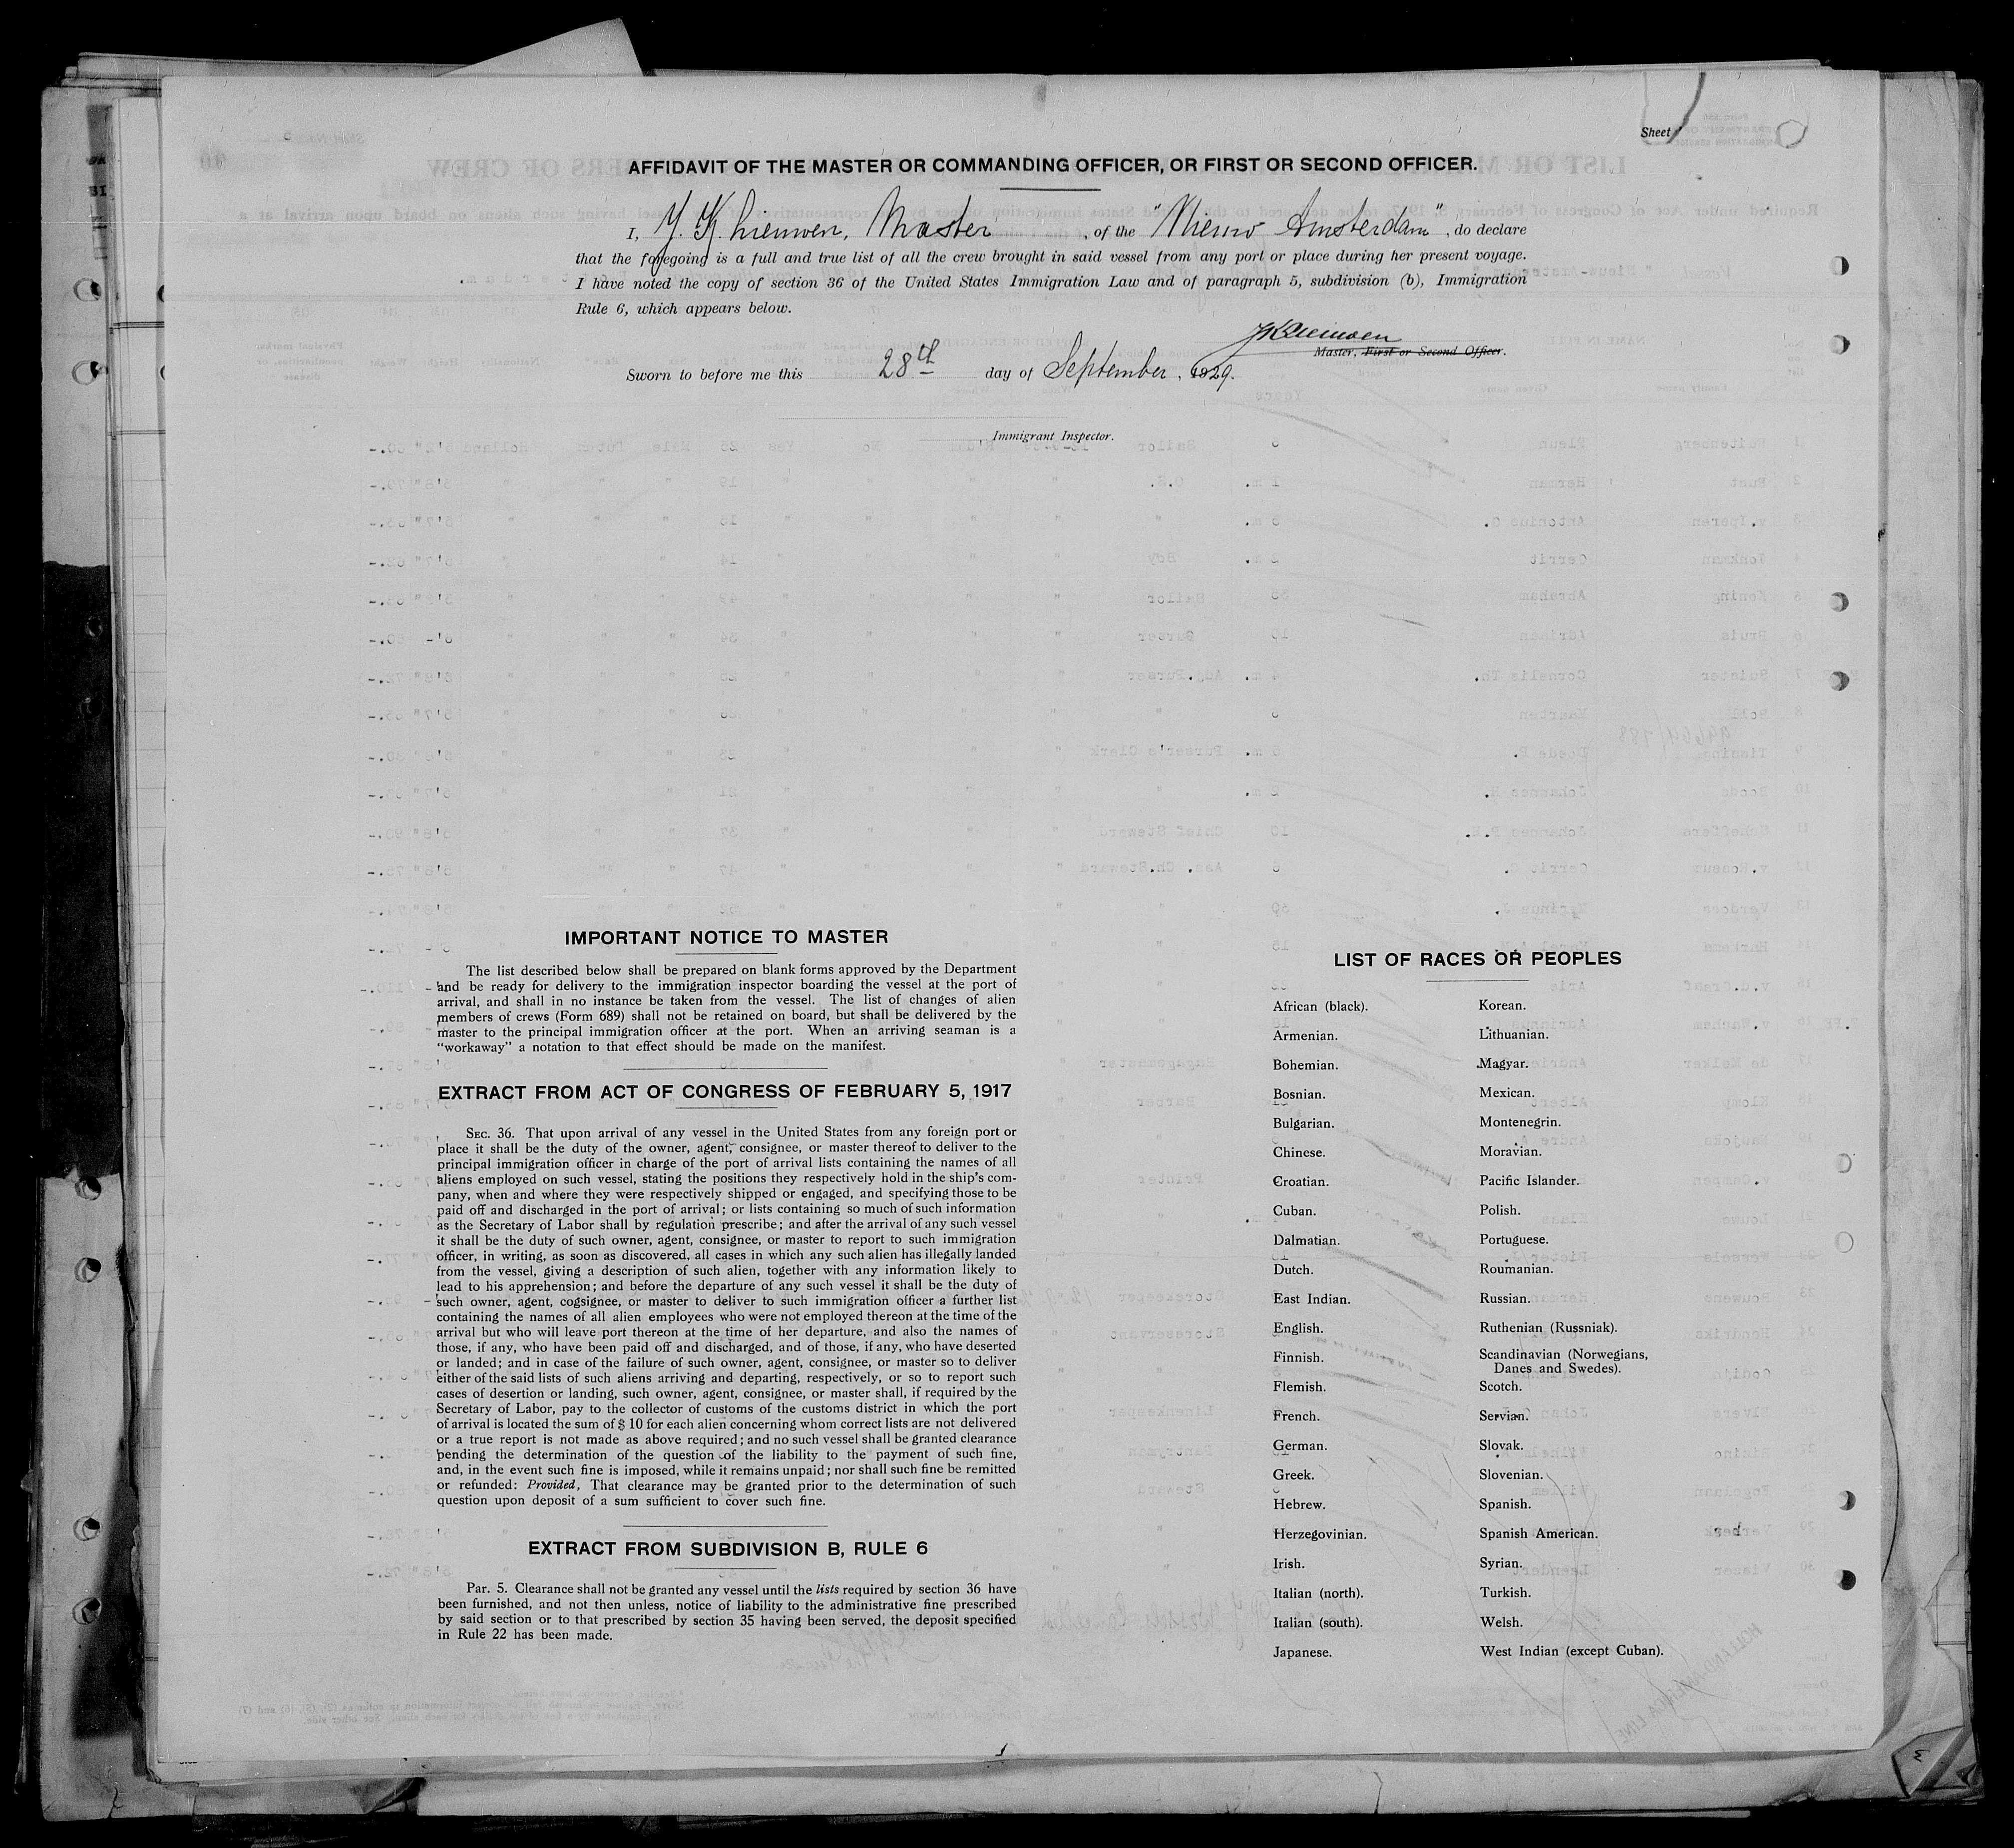 Sheet
AFFIDAVIT OF THE MASTER OR COMMANDING OFFICER, OR FIRST OR SECOND OFFICER.
I, Master, of the "Nieuw Amsterdam", do declare
that the foregoing is a full and true list of all the crew brought in said vessel from any port or place during her present voyage.
I have noted the copy of section 36 of the United States Immigration Law and of paragraph 5, subdivision (b), Immigration
Rule 6, which appears below.
Master, First or Second Officer.
Sworn to before me this 28th day of September, 1929.
Immigrant Inspector.
IMPORTANT NOTICE TO MASTER
The list described below shall be prepared on blank forms approved by the Department
and be ready for delivery to the immigration inspector boarding the vessel at the port of
arrival, and shall in no instance be taken from the vessel. The list of changes of alien
members of crews (Form 689) shall not be retained on board, but shall be delivered by the
master to the principal immigration officer at the port. When an arriving seaman is a
"workaway" a notation to that effect should be made on the manifest.
EXTRACT FROM ACT OF CONGRESS OF FEBRUARY 5, 1917
SEC. 36. That upon arrival of any vessel in the United States from any foreign port or
place it shall be the duty of the owner, agent, consignee, or master thereof to deliver to the
principal immigration officer in charge of the port of arrival lists containing the names of all
aliens employed on such vessel, stating the positions they respectively hold in the ship's com-
pany, when and where they were respectively shipped or engaged, and specifying those to be
paid off and discharged in the port of arrival; or lists containing so much of such information
as the Secretary of Labor shall by regulation prescribe; and after the arrival of any such vessel
it shall be the duty of such owner, agent, consignee, or master to report to such immigration
officer, in writing, as soon as discovered, all cases in which any such alien has illegally landed
from the vessel, giving a description of such alien, together with any information likely to
lead to his apprehension; and before the departure of any such vessel it shall be the duty of
such owner, agent, cogsignee, or master to deliver to such immigration officer a further list
containing the names of all alien employees who were not employed thereon at the time of the
arrival but who will leave port thereon at the time of her departure, and also the names of
those, if any, who have been paid off and discharged, and of those, if any, who have deserted
or landed; and in case of the failure of such owner, agent, consignee, or master so to deliver
either of the said lists of such aliens arriving and departing, respectively, or so to report such
cases of desertion or landing, such owner, agent, consignee, or master shall, if required by the
Secretary of Labor, pay to the collector of customs of the customs district in which the port
of arrival is located the sum of $ 10 for each alien concerning whom correct lists are not delivered
or a true report is not made as above required; and no such vessel shall be granted clearance
pending the determination of the question of the liability to the payment of such fine,
and, in the event such fine is imposed, while it remains unpaid; nor shall such fine be remitted
or refunded: Provided, That clearance may be granted prior to the determination of such
question upon deposit of a sum sufficient to cover such fine.
EXTRACT FROM SUBDIVISION B, RULE 6
Par. 5. Clearance shall not be granted any vessel until the lists required by section 36 have
been furnished, and not then unless, notice of liability to the administrative fine prescribed
by said section or to that prescribed by section 35 having been served, the deposit specified
in Rule 22 has been made.
LIST OF RACES OR PEOPLES
African (black).
Armenian.
Bohemian.
Bosnian.
Bulgarian.
Chinese.
Croatian.
Cuban.
Dalmatian.
Dutch.
East Indian.
English.
Finnish.
Flemish.
French.
German.
Greek.
Hebrew.
Herzegovinian.
Irish.
Italian (north).
Italian (south).
Japanese.
Korean.
Lithuanian.
Magyar.
Mexican.
Montenegrin.
Moravian.
Pacific Islander.
Polish.
Portuguese.
Roumanian.
Russian.
Ruthenian (Russniak).
Scandinavian (Norwegians,
Danes and Swedes).
Scotch.
Servian.
Slovak.
Slovenian.
Spanish.
Spanish American.
Syrian.
Turkish.
Welsh.
West Indian (except Cuban).